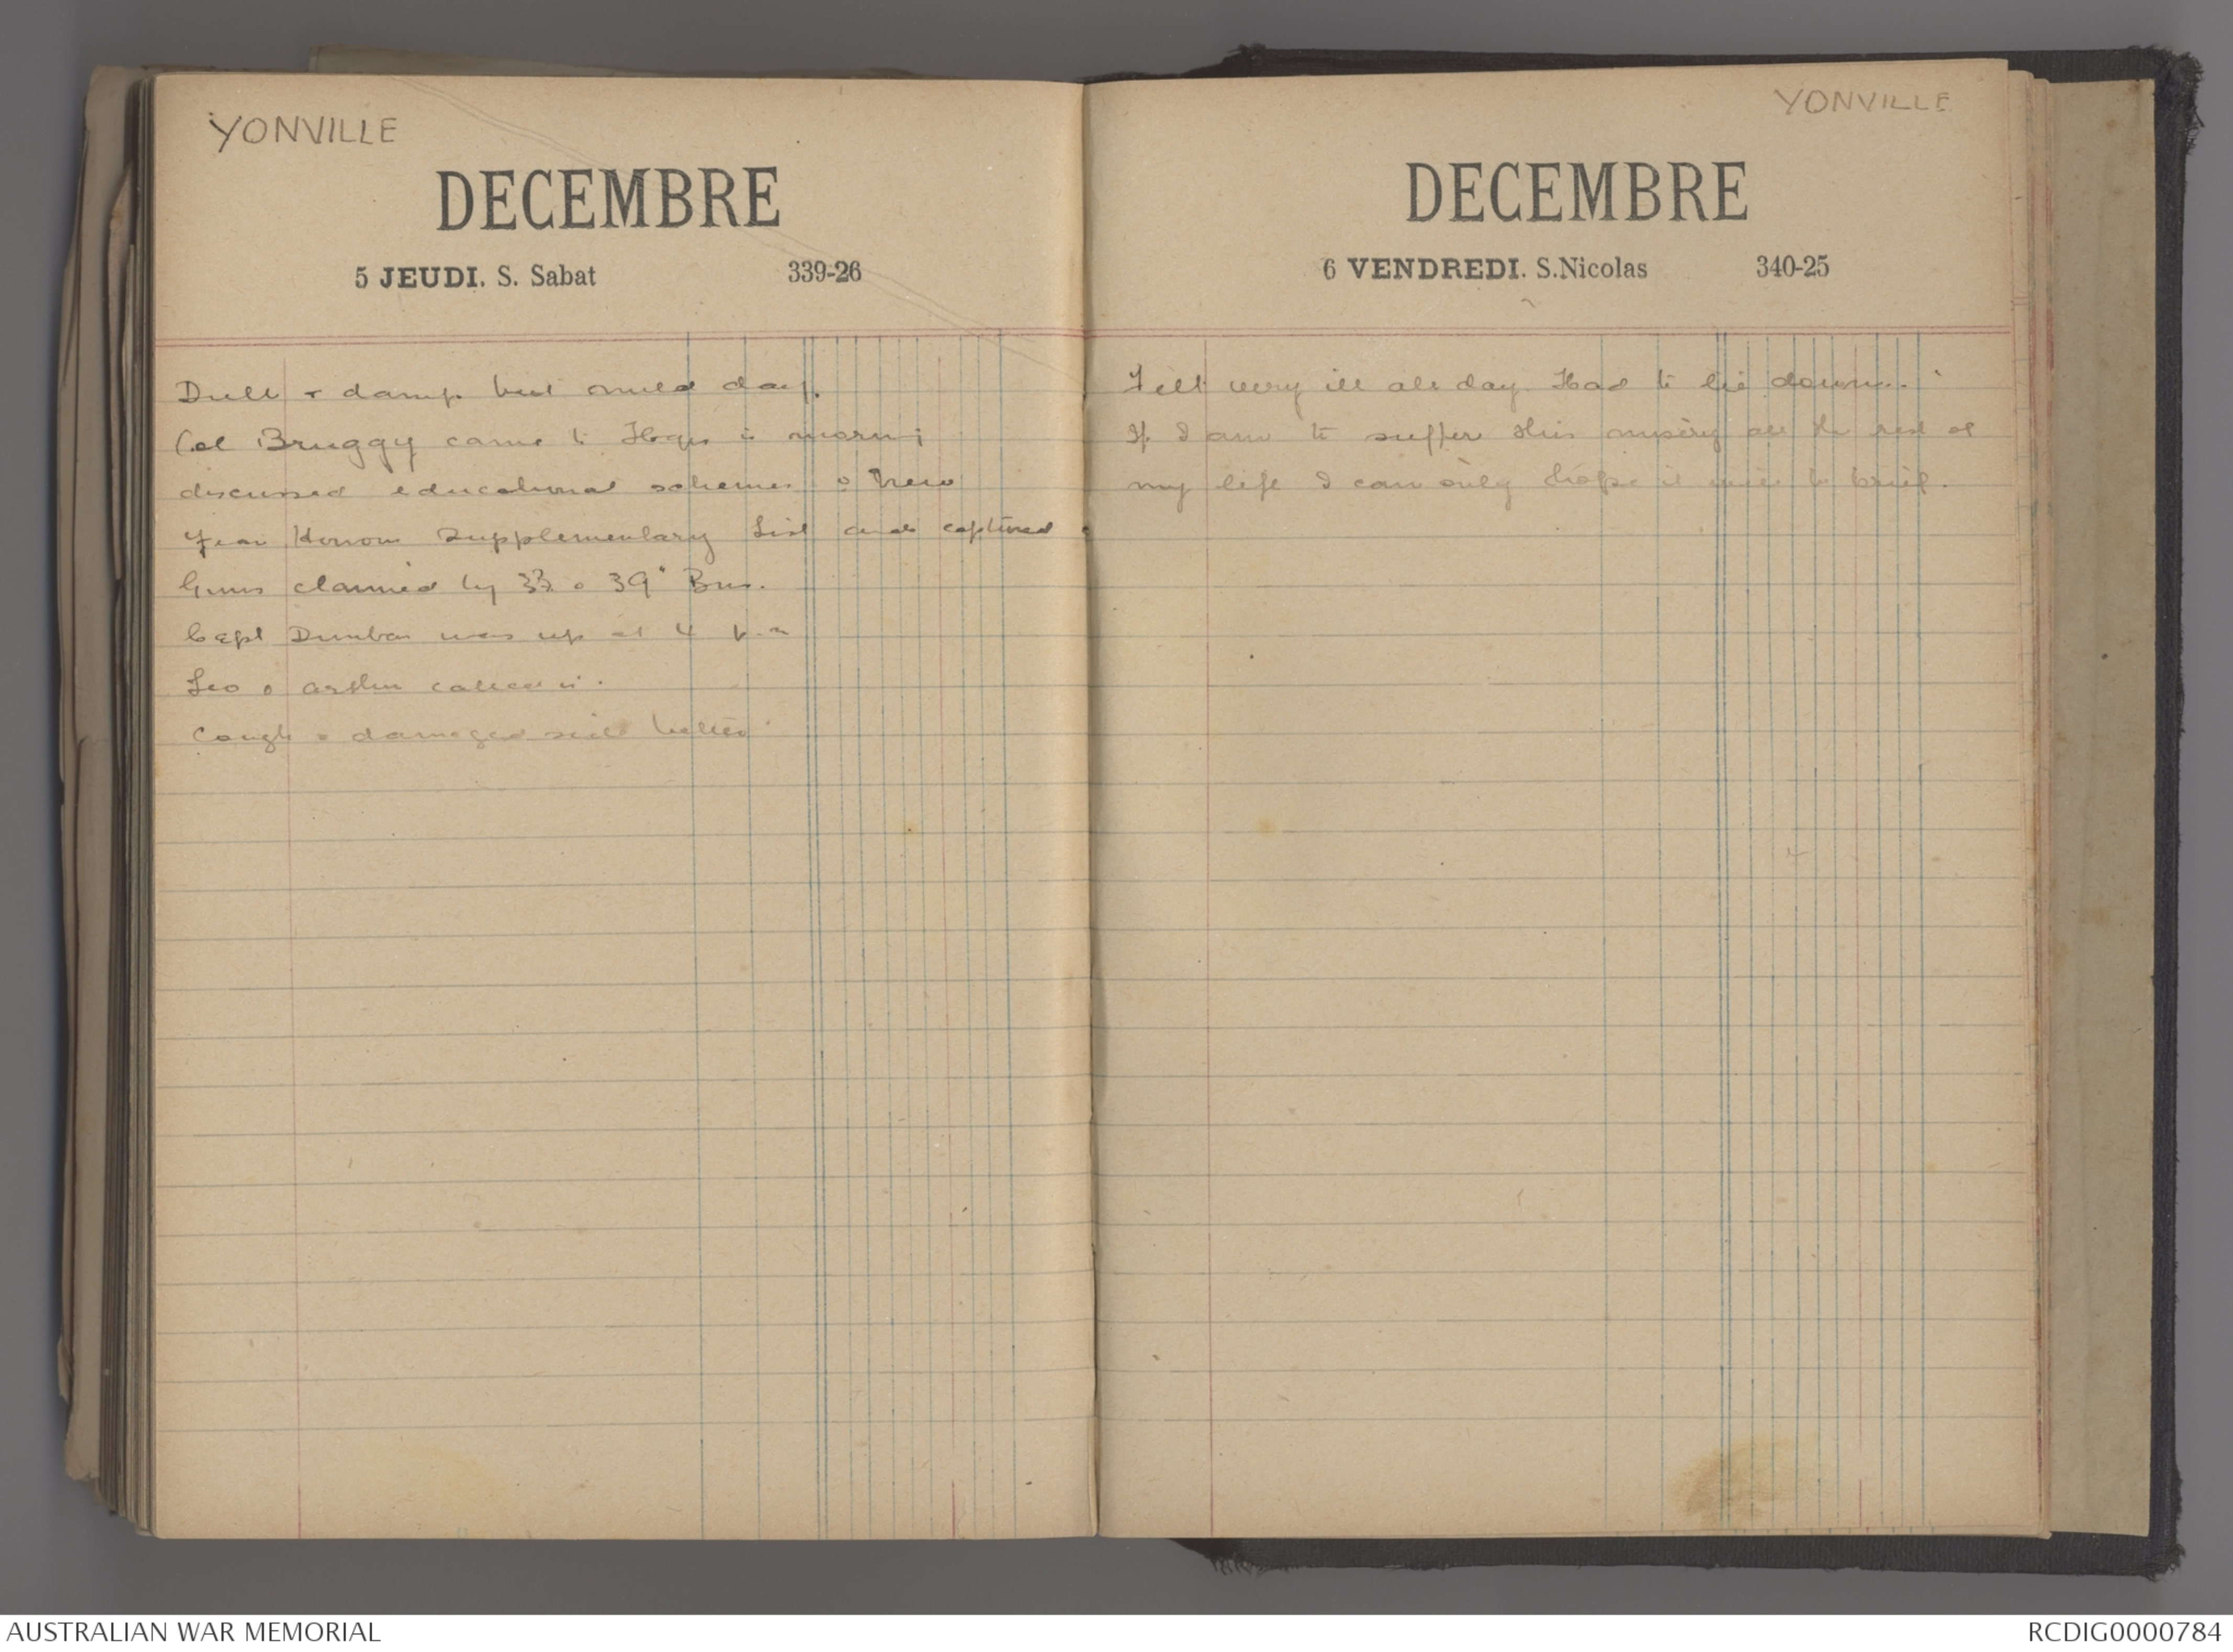 YONVILLE
DECEMBRE
5 JEUDI. S. Sabat 339-26
Dull & damp but mild day.
Col Bruggy came to Hqrs in morn;
discussed educational schemes & New
Year Honour Supplementary List and captured
Guns claimed by 33 & 39" Bns.
Capt Dunbar was up at 4 p.m
Leo & Arthur called in.
Cough & damaged side better
YONVILLE
DECEMBRE
6 VENDREDI. S.Nicolas 340-25
Felt very ill all day. Had to lie down.
If I am to suffer this misery all the rest of
my life I can only hope it will be brief.
AUSTRALIAN WAR MEMORIAL
RCDIG0000784